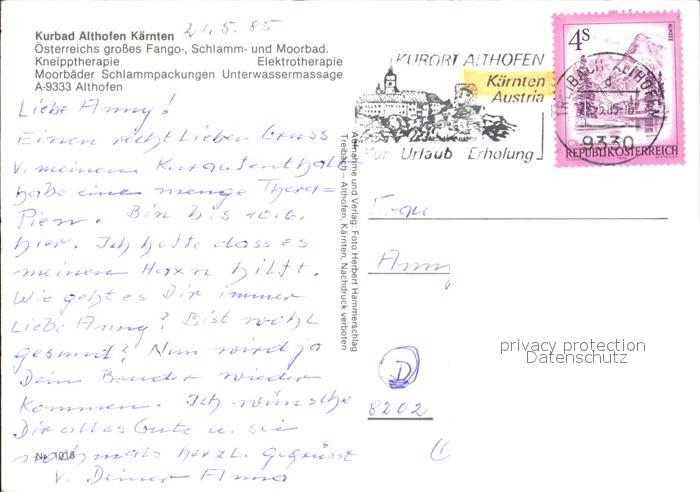 Kurbad Althofen Kärnten
21.5.85
Österreichs großes Fango-, Schlamm- und Moorbad.
Kneipptherapie Elektrotherapie
Moorbäder Schlammpackungen Unterwassermassage
A-9333 Althofen
Liebe Anny!
Einen recht lieben Gruss
v. meinem Kuraufenthalt
habe eine menge Thera=
pien. Bin bis 10.6.
hier. Ich hoffe dass es
meinen Haxn hilft.
Wie geht es Dir immer
Liebe Anny? Bist wohl
gesund? Nun wird ja
Dein Bruder wieder
kommen. Ich wünsche
Dir alles Gute u. sei
nochmals herzl. gegrüsst
v. Deiner Anna
Nr. 1018
Aufnahme und Verlag: Foto Herbert Hammerschlag
Treibach - Althofen, Kärnten, Nachdruck verboten
KURORT ALTHOFEN
Kärnten
Austria
Kur Urlaub Erholung
TREIBACH-ALTHOFEN
9330
4S
ALMSEE
REPUBLIK ÖSTERREICH
Frau
Anny
D
8202
privacy protection
Datenschutz